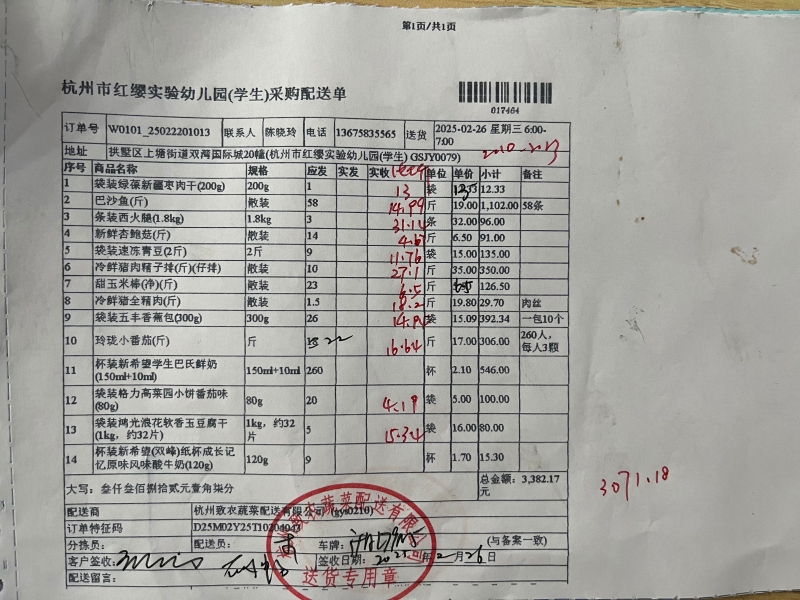 第1页/共1页
杭州市红缨实验幼儿园(学生)采购配送单
017464
订单号 W0101_25022201013 联系人 陈晓玲 电话 13675835565 送货 2025-02-26 星期三 6:00-7:00
地址 拱墅区上塘街道双湾国际城20幢(杭州市红缨实验幼儿园(学生) GSJY0079)
序号 商品名称 规格 应发 实发 实收 单位 单价 小计 备注
1 袋装绿葆新疆枣肉干(200g) 200g 1 13 袋 12.33
2 巴沙鱼(斤) 散装 58 14.99 斤 19.00 1,102.00 58条
3 条装西火腿(1.8kg) 1.8kg 3 31.14 条 32.00 96.00
4 新鲜杏鲍菇(斤) 散装 14 斤 6.50 91.00
5 袋装速冻青豆(2斤) 2斤 9 11.76 袋 15.00 135.00
6 冷鲜猪肉精子排(斤)(仔排) 散装 10 27.1 斤 35.00 350.00
7 甜玉米棒(净)(斤) 散装 23 斤 126.50
8 冷鲜猪全精肉(斤) 散装 1.5 18.2 斤 19.80 29.70 肉丝
9 袋装五丰香蕉包(300g) 300g 26 袋 15.09 392.34 一包10个
10 玲珑小番茄(斤) 斤 22 16.64 斤 17.00 306.00 260人,每人3颗
11 杯装新希望学生巴氏鲜奶(150ml+10ml) 150ml+10ml 260 杯 2.10 546.00
12 袋装格力高菜园小饼番茄味(80g) 80g 20 4.19 袋 5.00 100.00
13 袋装鸿光浪花软香玉豆腐干(1kg,约32片) 1kg,约32片 5 15.34 袋 16.00 80.00
14 杯装新希望(双峰)纸杯成长记忆原味风味酸牛奶(120g) 120g 9 杯 1.70 15.30
大写:叁仟叁佰捌拾贰元壹角柒分 总金额:3,382.17元
3071.18
配送商 杭州致农蔬菜配送有限公司(gys0210)
订单特征码
分拣员: 配送员: 车牌: (与备案一致)
客户签收: 签收日期: 2025年2月26日
配送留言:
送货专用章